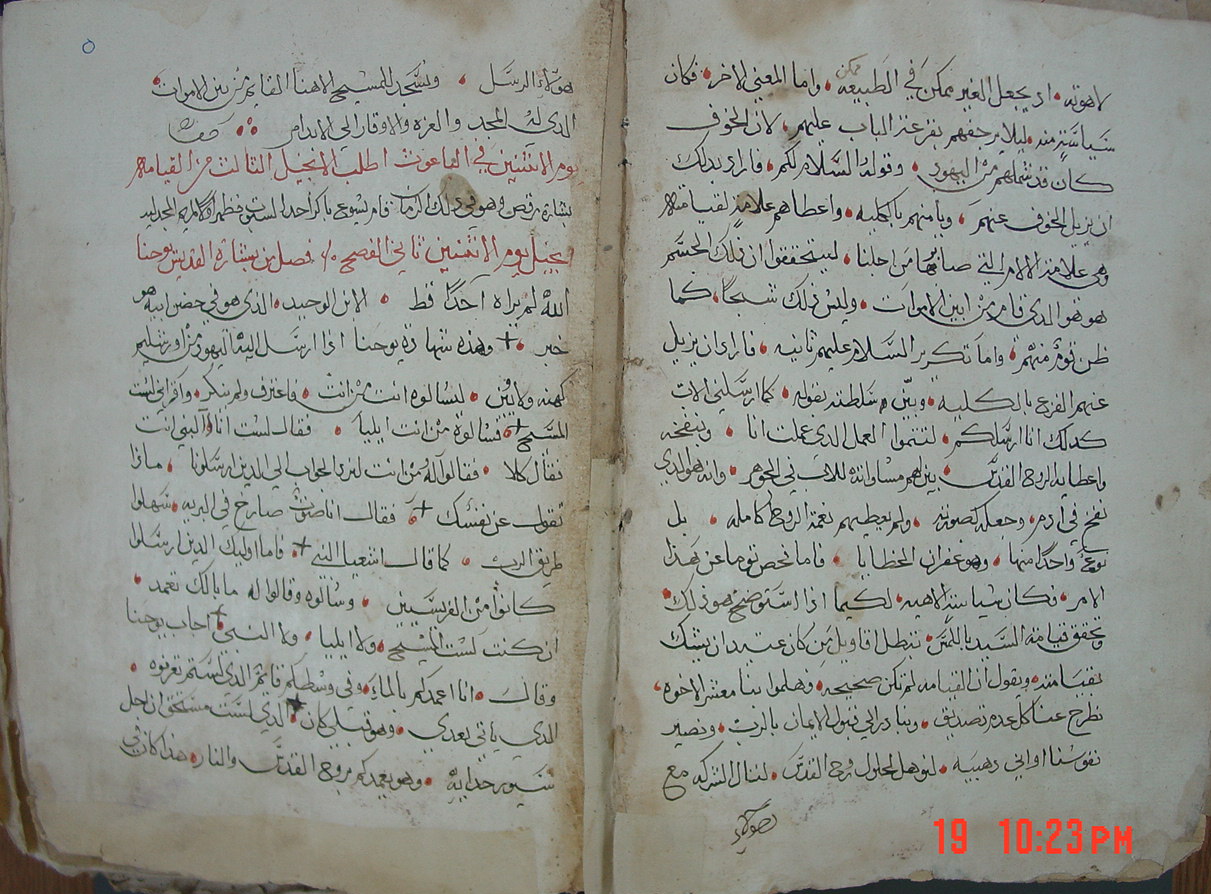 لاهوته اذ يجعل الغير ممكن في الطبيعه ممكن واما المعني الاخر فكان
سياسته منه ليلا يرجفهم بقرعته الباب عليهم لان الخوف
كان قد شملهم من اليهود وقوله السلام لكم فاراد بذلك
ان يزيل الخوف عنهم ويامنهم بالكليه واعطاهم علامه لقيامته
وهي علامة الالام التي صابها من اجلنا ليتحققوا ان ذلك الجسم
هو هو الدي قام من بين الاموات وليس ذلك شبحا كما
ظن قوم منهم واما تكرير السلام عليهم ثانيه فاراد ان يزيل
عنهم الفزع بالكليه وبين سلطته بقوله كما ارسلني الاب
كدلك انا ارسلكم لتتموا العمل الدي عملت انا وبنفخه
واعطايه الروح القدس بين لهم مساواته للاب في الجوهر وانه هو الدي
نفخ في ادم وجعله كصورته ولم يعطيهم نعمة الروح كامله بل
نوعا واحدا منها وهو غفران الخطايا فاما فحص توما عن هدا
الامر فكان سياسة الاهيه لكيما اذا استوضح هو ذلك
وتحقق قيامة السيد باللمس تبطل اقاويل من كان عتيد ان يشك
بقيامته ويقول ان القيامه لم تكن صحيحه وهلموا بنا معشر الاخوه
نطرح عنا كل عدم تصديق ونبادر الي قبول الايمان بالرب ونصير
نفوسنا اواني دهبيه لنوهل لحلول روح القدس لننال الشركه مع
هولاء
هولاء الرسل ونسجد للمسيح الاهنا القايم من بين الاموات
الدي له المجد والعزه والوقار الي الابد امين
يوم الاثنين في الباعوث اطلب الانجيل التالت من القيامه
بشارة مرقص وهو في ذلك الزمان قام يسوع باكر احد السبت فظهر اولا لمريم المجدليه
انجيل يوم الاثنين تاني الفصح فصل من بشارة القديس يوحنا
الله لم يراه احدا قط الابن الوحيد الدي هو في حضن ابيه هو
خبر وهذه شهادة يوحنا اذا ارسل اليه اليهود من اورشليم
كهنه ولاويين ليسالوه انت من انت فاعترف ولم ينكر واقر اني لست
المسيح فسالوه من انت ايليا فقال لست انا النبي انت
فقال كلا فقالوا له من انت لنرد الجواب الي الدين ارسلونا مادا
تقول عن نفسك فقال انا صوت صارخ في البريه سهلوا
طريق الرب كما قال اشعيا النبي فاما اوليك الدين ارسلوا
كانوا من الفريسيين وسالوه وقالوا له ما بالك تعمد
ان كنت لست المسيح ولا ايليا ولا النبي اجاب يوحنا
وقال انا اعمدكم بالماء وفي وسطكم قايم الدي لستم تعرفوه
الدي ياتي بعدي وهو قبلي كان الدي لست مستحق ان احل
سيور حدايه وهو يعمدكم بروح القدس والنار هذا كان في
19 10:23 PM